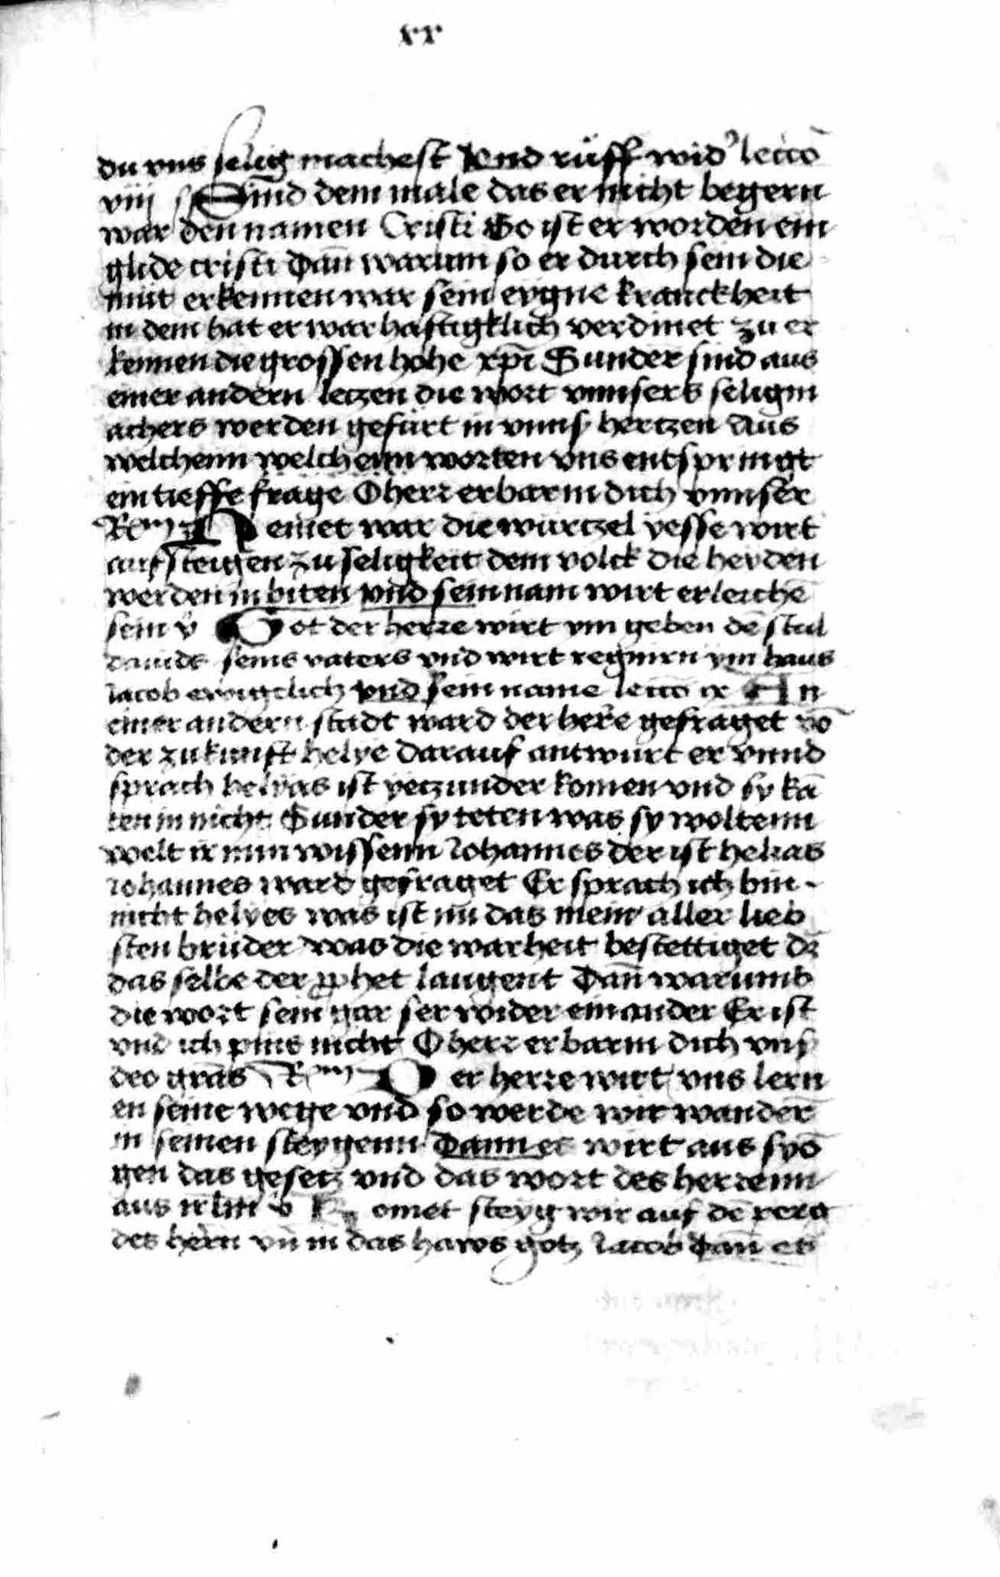 xx
du vns selig machest Vnd rüff wid' lectō
viij Sind dem male das er nicht begern
war den namen Cristi So ist er worden ein
glide cristi Dan̄ warum so er durch sein die
mut erkennen war sein eygne kranckheit
in dem hat er warhaftigklich verdinet zu er
kennen die grossen hohe xp̄i Sunder sind aus
einer andern letzen die wort vnnsers seligm
achers werden gefurt in vnns hertzen Aus
welchenn welchenn worten vns entspringt
ein tieffe frage O herr erbarm dich vnnser
Rm N emet war die wurtzel yesse wirt
aufsteigen zu seligkeit dem volck die heyden
werden in biten vnd sein nam wirt erleichē
sein v̄ Got der herre wirt vm geben dē stul
dauids seins vaters vnd wirt regnirn ym haus
Jacob ewigclich vnd sein name lectō ix In
einer andern stadt ward der here gefraget vō
der zukunft helye darauf antwurt er vnnd
sprach helyas ist yetzunder komen vnd sy kā
ten in nicht Sunder sy teten was sy woltenn
welt ir nun wissenn Johannes der ist helias
Johannes ward gefraget Er sprach ich bin
nicht helyes was ist nū das mein aller lieb
sten brüder was die warheit bestettiget dz
das selbe der p̄phet laugent Dan̄ warumb
die wort sein gar ser wider einander Er ist
vnd ich pins nicht O herr erbarm dich vns
deo grās Rm D er herre wirt vns lern
en seine wege vnd so werde wir wandern̄
in seinen steygenn Dann es wirt aus syō
gen das gesetz vnd das wort des herrenn
aus irl̄m v̄ K omet steyg wir auf dē perg
des hern̄ vn̄ in das haws gotz Jacob Dan̄ es